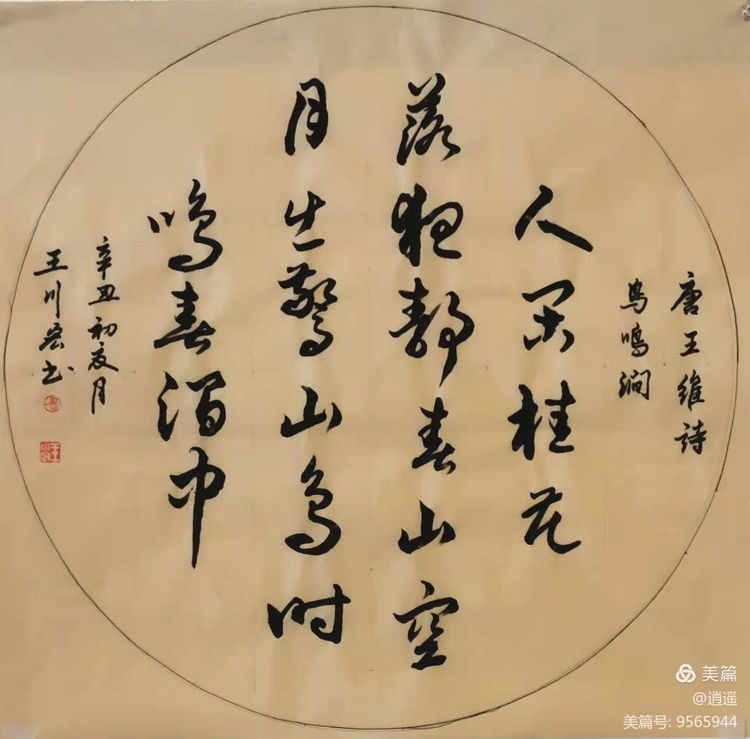 唐王維詩
鸟鳴澗
人闲桂花
落夜静春山空
月出驚山鸟时
鸣春涧中
辛丑初夏月
王川宏书
美篇
@逍遥
美篇号: 9565944